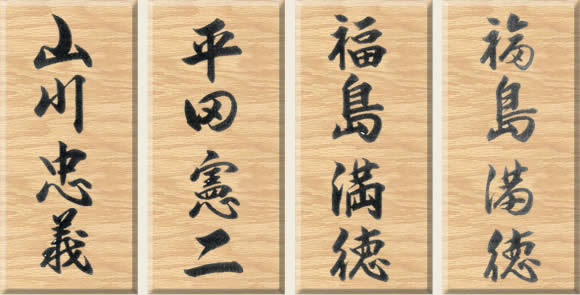 福島満徳
福島満徳
平田憲二
山川忠義